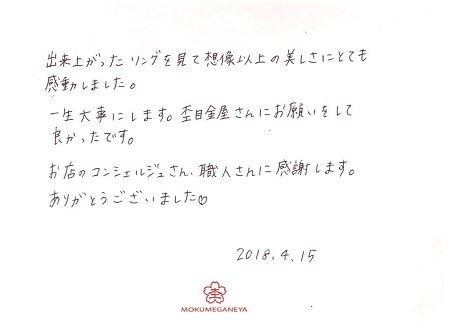 出来上がったリングを見て想像以上の美しさにとても
感動しました。
一生大事にします。杢目金屋さんにお願いをして
良かったです。
お店のコンシェルジュさん、職人さんに感謝します。
ありがとうございました♡
2018.4.15
MOKUMEGANEYA